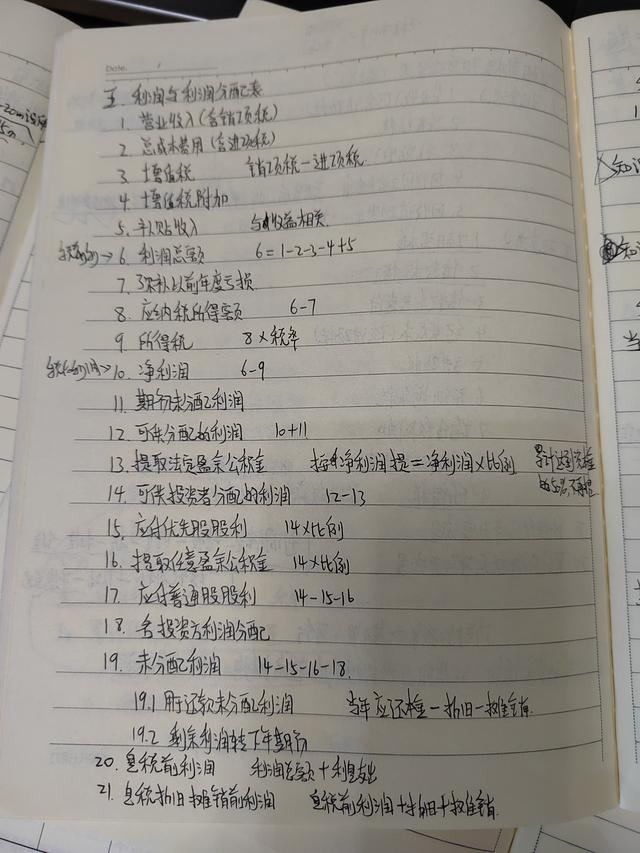 Date.
五. 利润与利润分配表
1. 营业收入(含销项税)
2. 总成本费用(含进项税)
3. 增值税 销项税-进项税
4. 增值税附加
5. 补贴收入 与收益相关.
→ 6. 利润总额 6=1-2-3-4+5
7. 弥补以前年度亏损
8. 应纳税所得额 6-7
9. 所得税 8×税率
→ 10. 净利润 6-9
11. 期初未分配利润
12. 可供分配的利润 10+11
13. 提取法定盈余公积金 按净利润提=净利润×比例 累计达到注册
的50%,不再提
14. 可供投资者分配的利润 12-13
15. 应付优先股股利 14×比例
16. 提取任意盈余公积金 14×比例
17. 应付普通股股利 14-15-16
18. 各投资方利润分配
19. 未分配利润 14-15-16-18.
19.1 用于还款未分配利润 当年应还本-折旧-摊销.
19.2 剩余利润转下年期初
20. 息税前利润 利润总额+利息支出
21. 息税折旧摊销前利润 息税前利润+折旧+摊销.